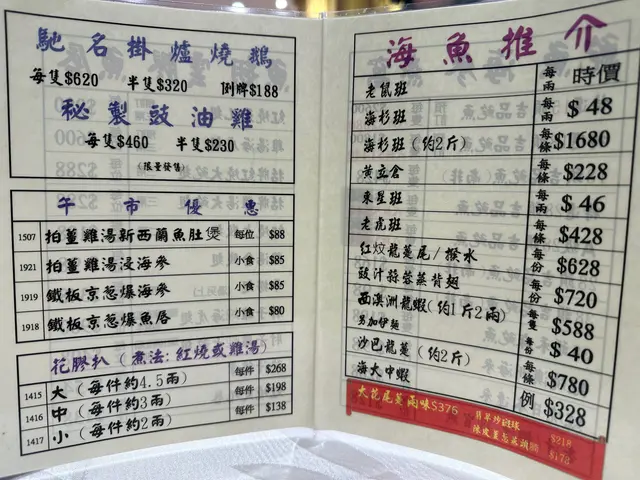 馳名掛爐燒鵝
每隻$620 半隻$320 例牌$188
秘製豉油雞
每隻$460 半隻$230
(限量發售)
午市優惠
1507 拍薑雞湯新西蘭魚肚煲 每位 $88
1921 拍薑雞湯浸海參 小食 $85
1919 鐵板京葱爆海參 小食 $85
1918 鐵板京葱爆魚唇 小食 $80
花膠扒(煮法:紅燒或雞湯)
1415 大(每件約4.5兩) 每件 $268
1416 中(每件約3兩) 每件 $198
1417 小(每件約2兩) 每件 $138
海魚推介
老鼠班 每兩 時價
海杉班 每兩 $48
海杉班(約2斤) 每條 $1680
黃立倉 每條 $228
東星班 每兩 $46
老虎班 每條 $428
紅炆龍躉尾/撥水 每份 $628
豉汁蒜蓉蒸背翅 每份 $720
西澳洲龍蝦(約1斤2兩) 每隻 $588
另加伊麵 每份 $40
沙巴龍躉(約2斤) 每條 $780
海大中蝦 例 $328
大花尾躉兩味$376
$218
$178